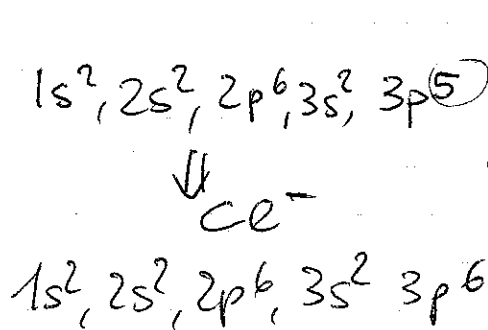 1s², 2s², 2p⁶, 3s², 3p⁵
⇓
Cl⁻
1s², 2s², 2p⁶, 3s² 3p⁶